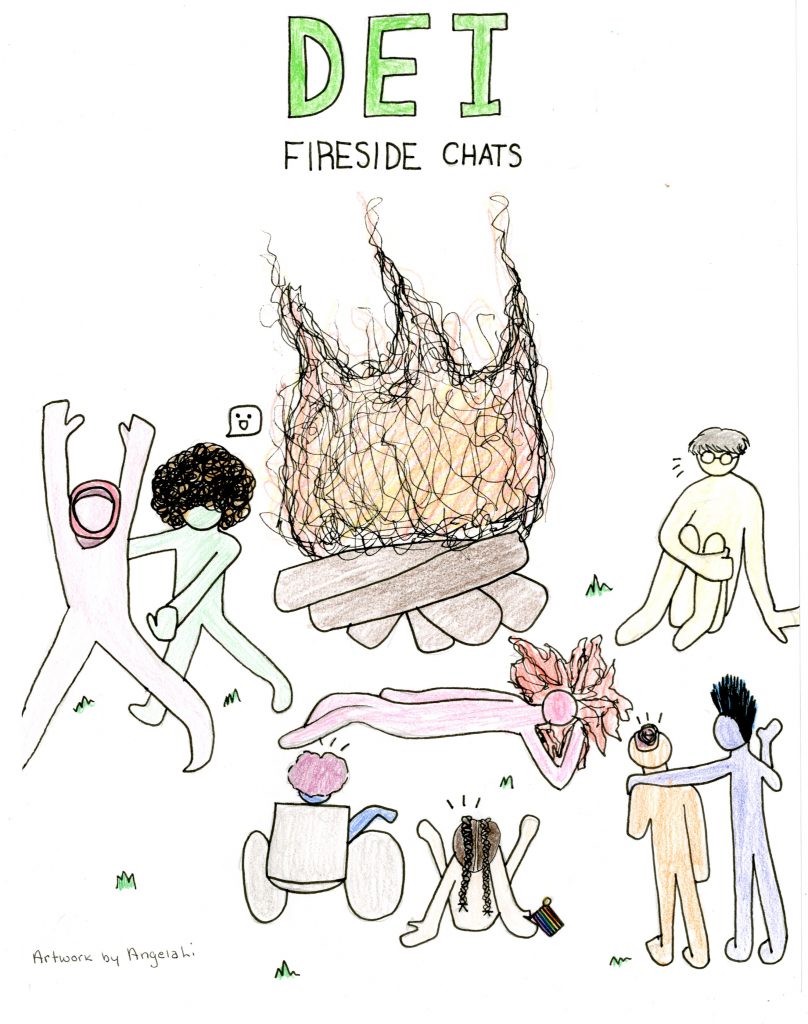 DEI
FIRESIDE CHATS
Artwork by Angela Li